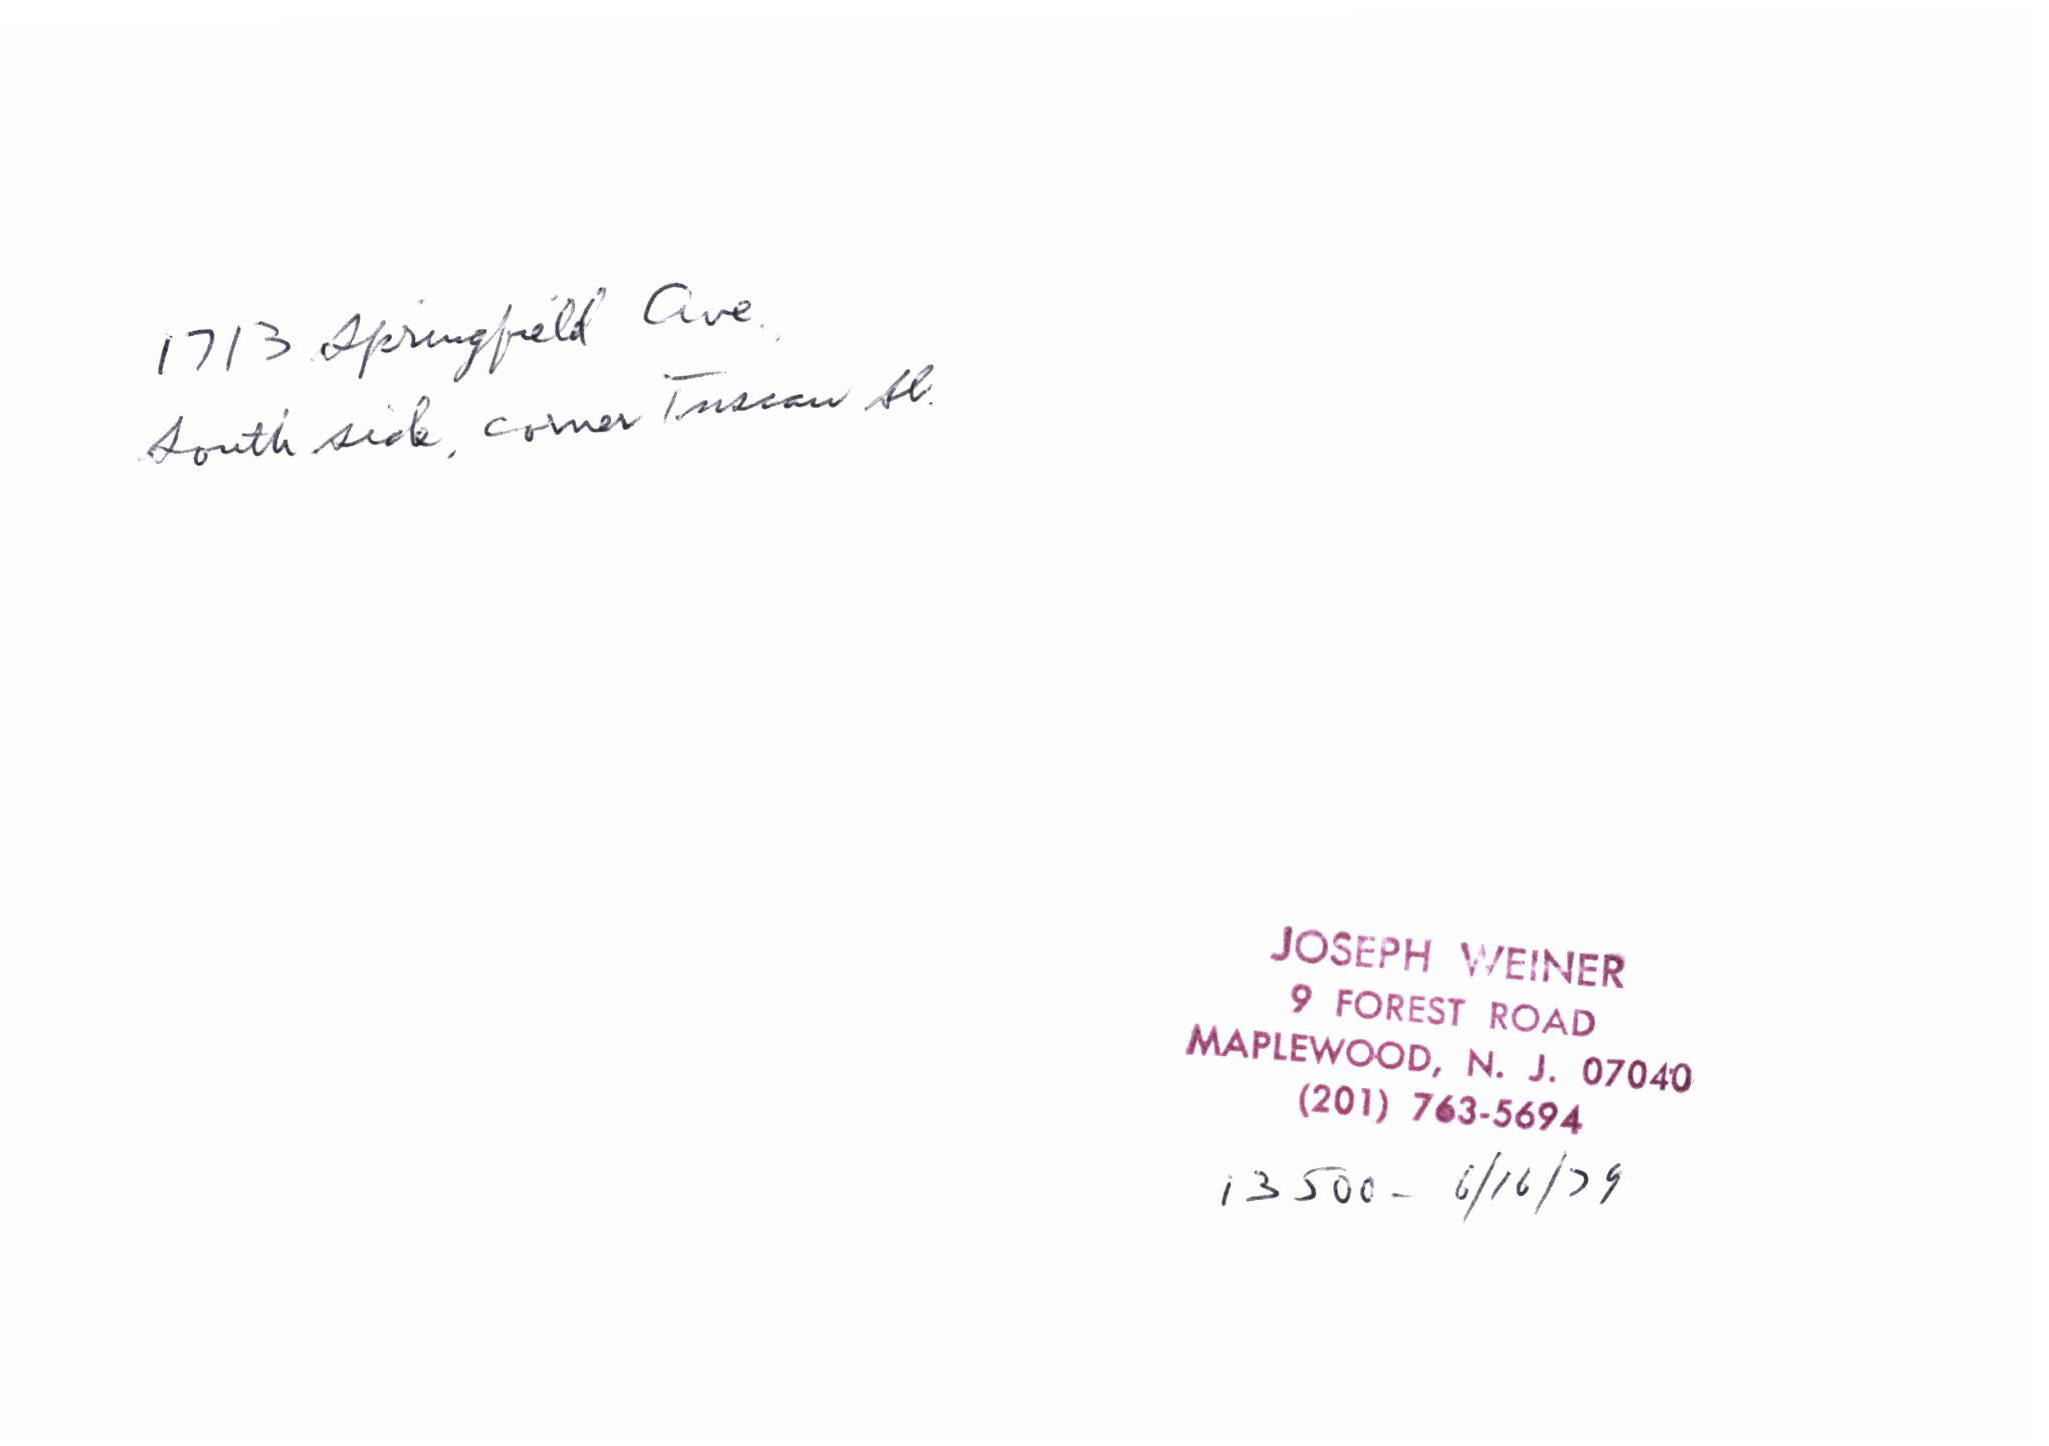 1713 Springfield Ave.
South side, corner Tuscan St.
JOSEPH WEINER
9 FOREST ROAD
MAPLEWOOD, N. J. 07040
(201) 763-5694
13500- 6/16/79